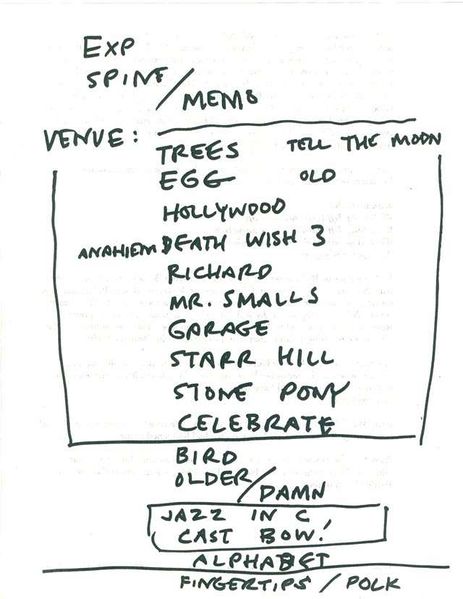 EXP
SPINE/MEMO
VENUE:
TREES TELL THE MOON
EGG OLD
HOLLYWOOD
ANAHIEM DEATH WISH 3
RICHARD
MR. SMALLS
GARAGE
STARR HILL
STONE PONY
CELEBRATE
BIRD
OLDER/DAMN
JAZZ IN C
CAST BOW!
ALPHABET
FINGERTIPS / POLK